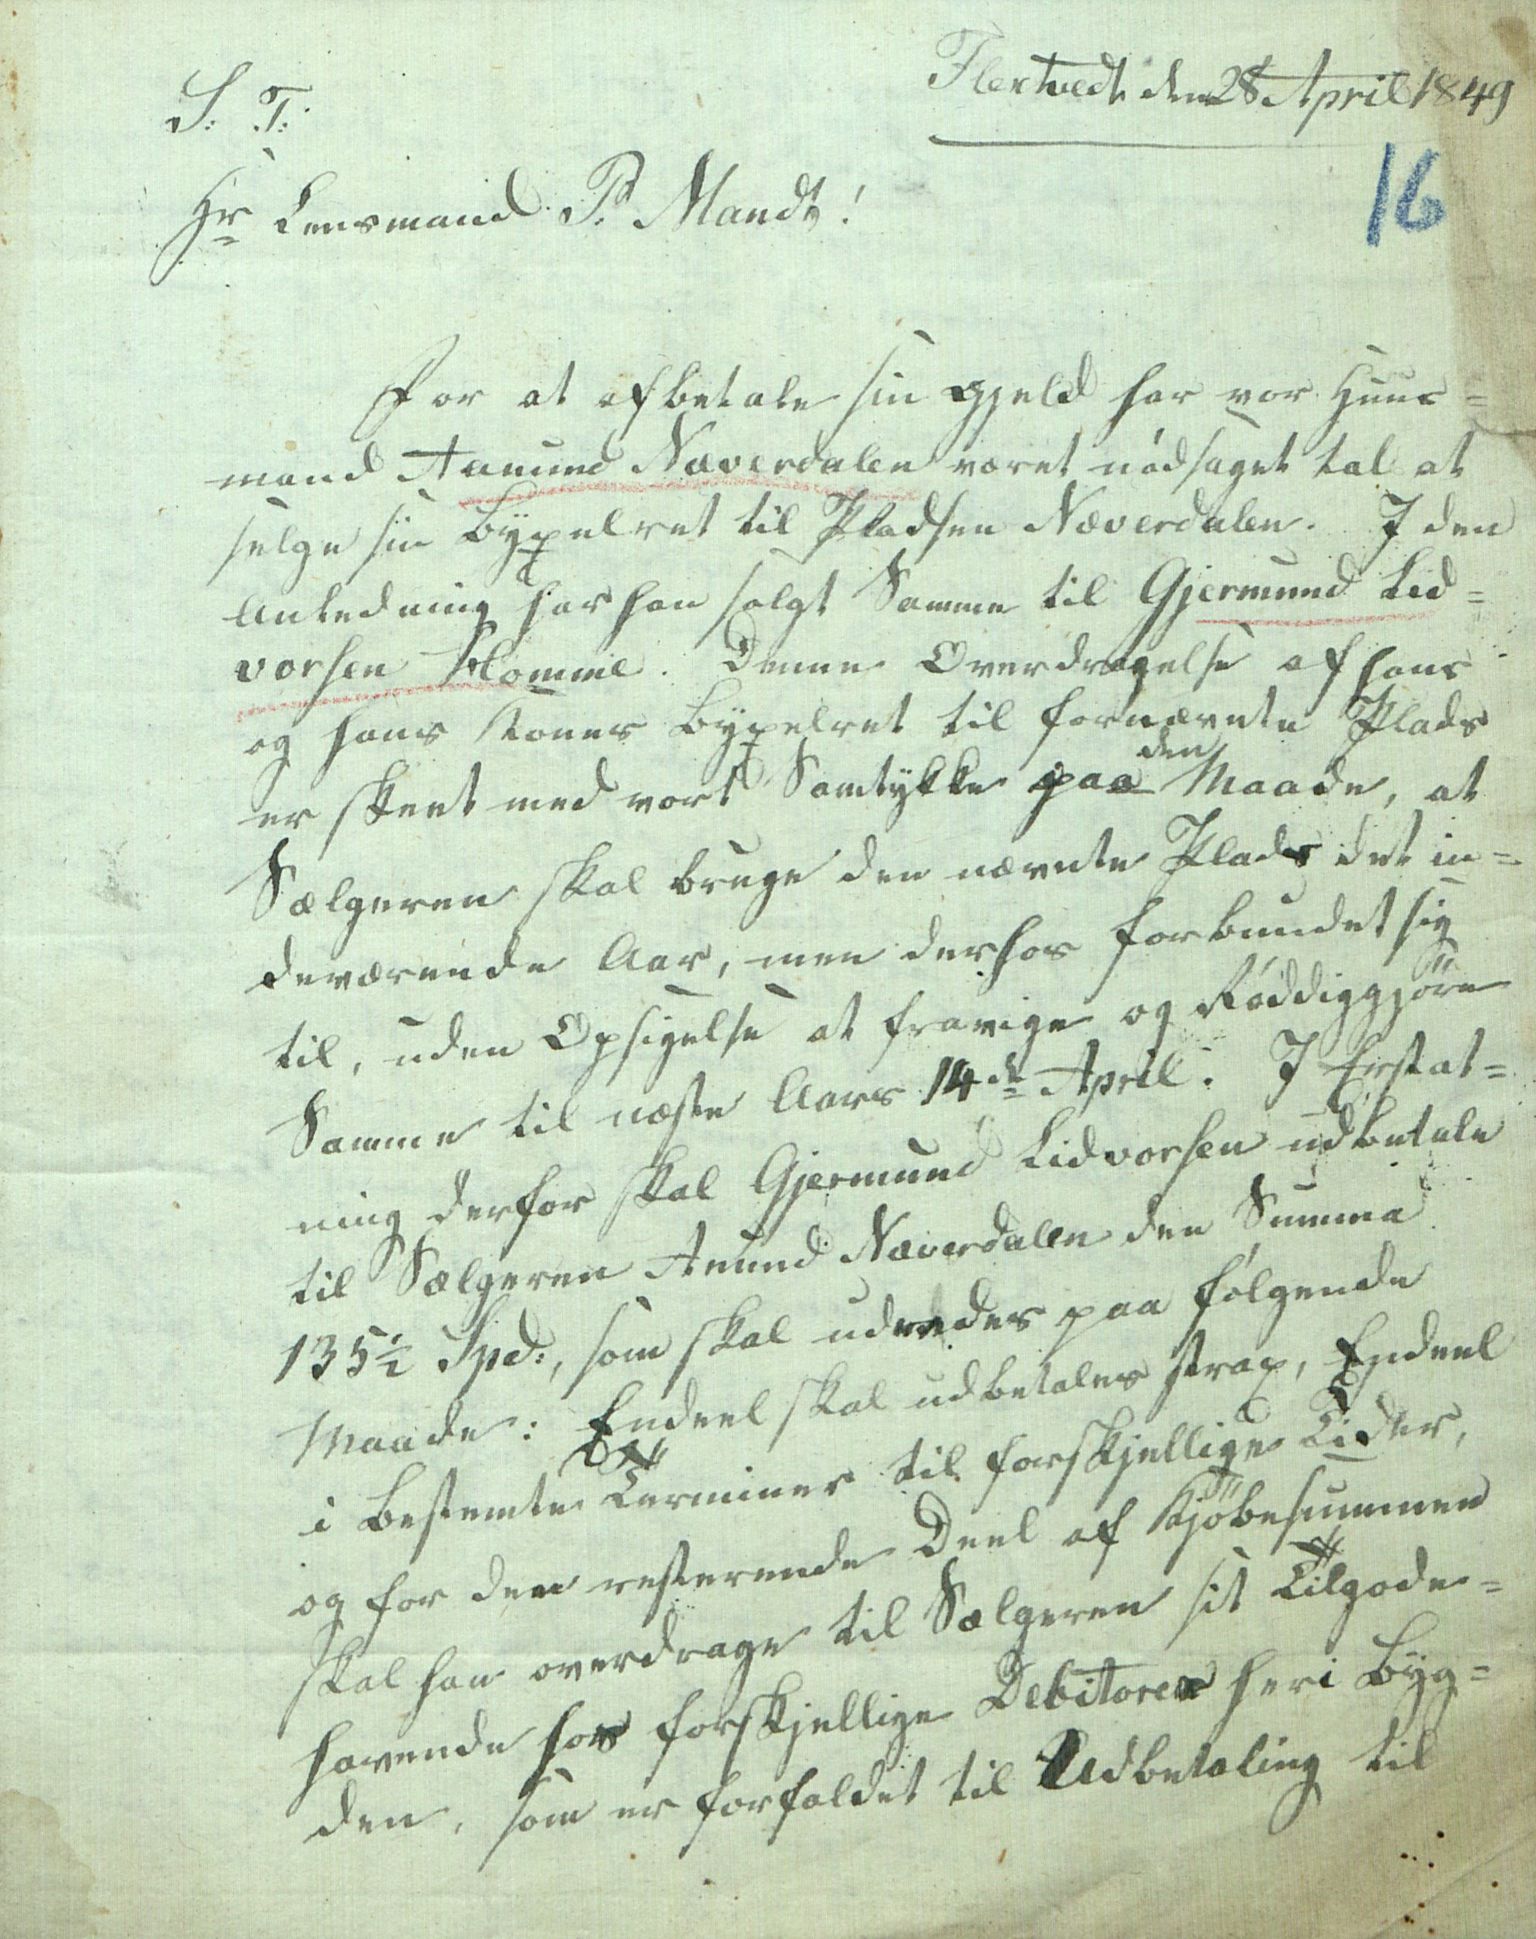 Flertvedt den 28 April 1849
S: T:
16
Hr Lensmand P. Mandt!
For at afbetale sin Gjeld har vor Huus=
mand Aanund Næverdalen været nødsaget tal at
selge sin Bÿxelret til Pladsen Næverdalen. I den
Anledning har han solgt Samme til Gjermund Lid=
vorsen Homme. Denne Overdragelse af hans
og hans Kones Bÿxelret til fornævnte Plads
er skeet med vort Samtÿkke paa den Maade, at
Sælgeren skal bruge den nævnte Plads det in=
deværende Aar, men derhos forbundet sig
til, uden Opsigelse at fravige og Røddiggjøre
Samme til næste Aars 14de April. I Erstat=
ning derfor skal Gjermund Lidvorsen udbetale
til Sælgeren Anund Næverdalen den Summa
135½ Spd:, som skal udredes paa følgende
Maade: Endeel skal udbetales strax, Endeel
i bestemte Terminer til forskjellige Tider,
og for den resterende Deel af Kjøbesummen
skal han overdrage til Sælgeren sit Tilgode=
havende hos forskjellige Debitorer her i Bÿg=
den, som er forfaldet til Udbetaling til